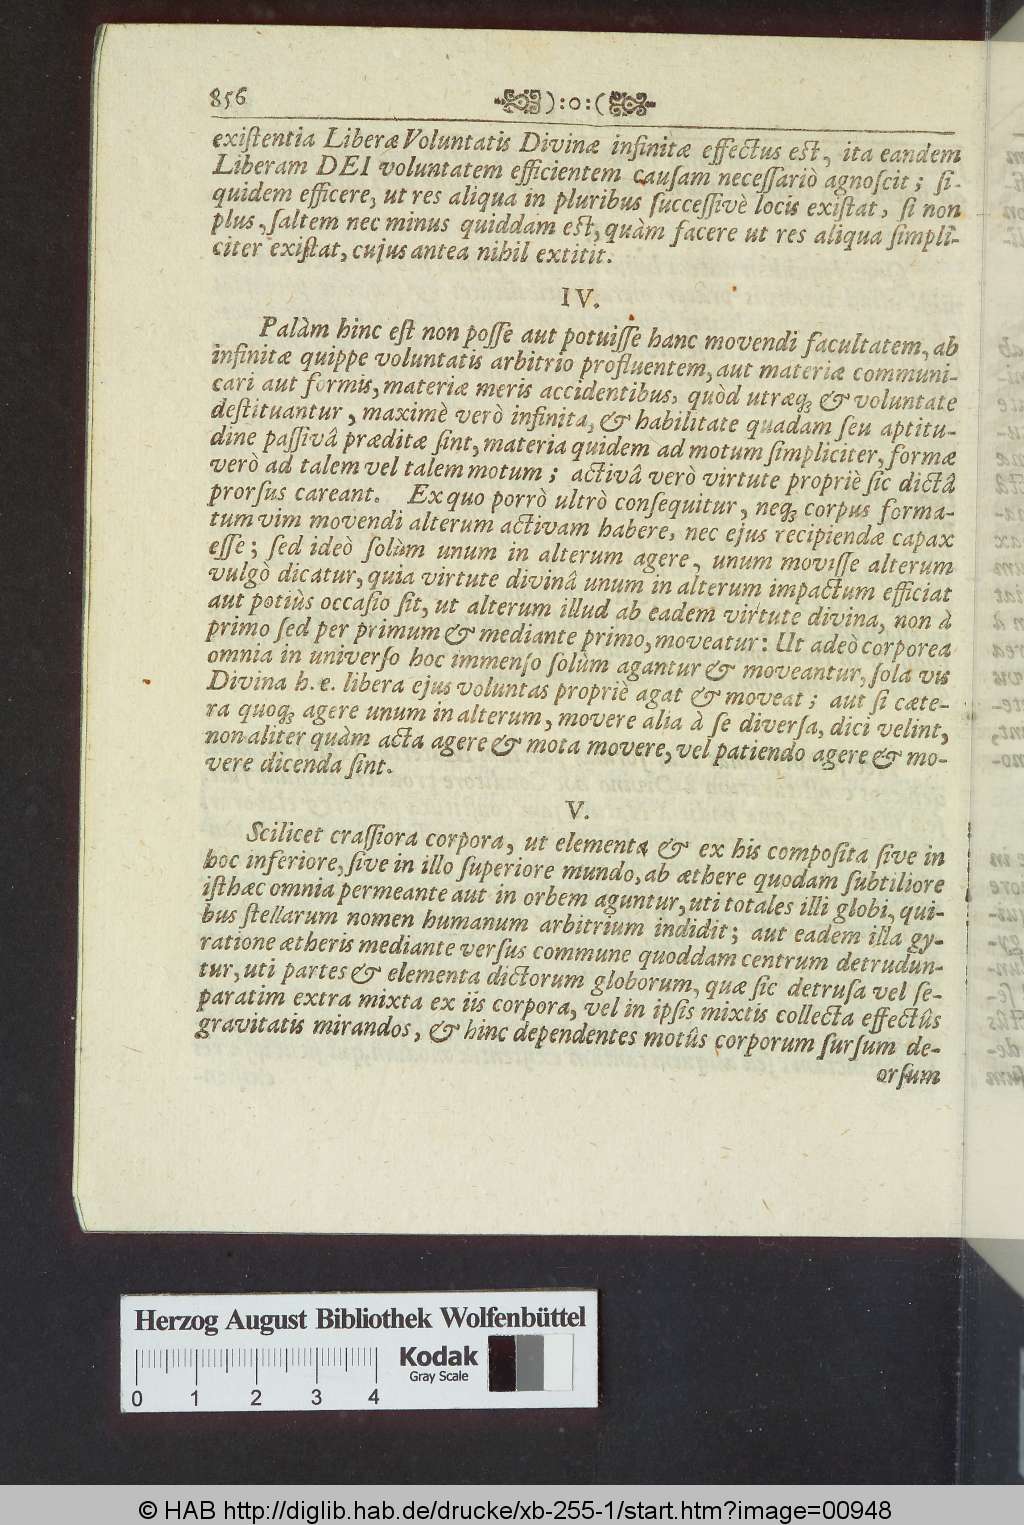 856 ):o:(
exiſtentia Liberæ Voluntatis Divinæ infinitæ effectus eſt, ita eandem
Liberam DEI voluntatem efficientem cauſam neceſſariò agnoſcit; ſi-
quidem efficere, ut res aliqua in pluribus ſucceſſivè locis exiſtat, ſi non
plus, ſaltem nec minus quiddam eſt, quàm facere ut res aliqua ſimpli-
citer exiſtat, cujus antea nihil extitit.
IV.
Palàm hinc eſt non poſſe aut potuiſſe hanc movendi facultatem, ab
infinitæ quippe voluntatis arbitrio profluentem, aut materiæ communi-
cari aut formis, materiæ meris accidentibus, quòd utræq; & voluntate
deſtituantur, maximè verò infinita, & habilitate quadam ſeu aptitu-
dine paſſivâ præditæ ſint, materia quidem ad motum ſimpliciter, formæ
verò ad talem vel talem motum; activâ verò virtute propriè ſic dictâ
prorſus careant. Ex quo porrò ultrò conſequitur, neq; corpus forma-
tum vim movendi alterum activam habere, nec ejus recipiendæ capax
eſſe; ſed ideò ſolùm unum in alterum agere, unum moviſſe alterum
vulgò dicatur, quia virtute divinâ unum in alterum impactum efficiat
aut potiùs occaſio ſit, ut alterum illud ab eadem virtute divina, non à
primo ſed per primum & mediante primo, moveatur: Ut adeò corporea
omnia in univerſo hoc immenſo ſolùm agantur & moveantur, ſola vis
Divina h. e. libera ejus voluntas propriè agat & moveat; aut ſi cæte-
ra quoq; agere unum in alterum, movere alia à ſe diverſa, dici velint,
non aliter quàm acta agere & mota movere, vel patiendo agere & mo-
vere dicenda ſint.
V.
Scilicet craſſiora corpora, ut elementa & ex his compoſita ſive in
hoc inferiore, ſive in illo ſuperiore mundo, ab æthere quodam ſubtiliore
iſthæc omnia permeante aut in orbem aguntur, uti totales illi globi, qui-
bus ſtellarum nomen humanum arbitrium indidit; aut eadem illa gy-
ratione ætheris mediante verſus commune quoddam centrum detrudun-
tur, uti partes & elementa dictorum globorum, quæ ſic detruſa vel ſe-
paratim extra mixta ex iis corpora, vel in ipſis mixtis collecta effectûs
gravitatis mirandos, & hinc dependentes motûs corporum ſurſum de-
orſum
Herzog August Bibliothek Wolfenbüttel
Kodak
Gray Scale
0 1 2 3 4
© HAB http://diglib.hab.de/drucke/xb-255-1/start.htm?image=00948